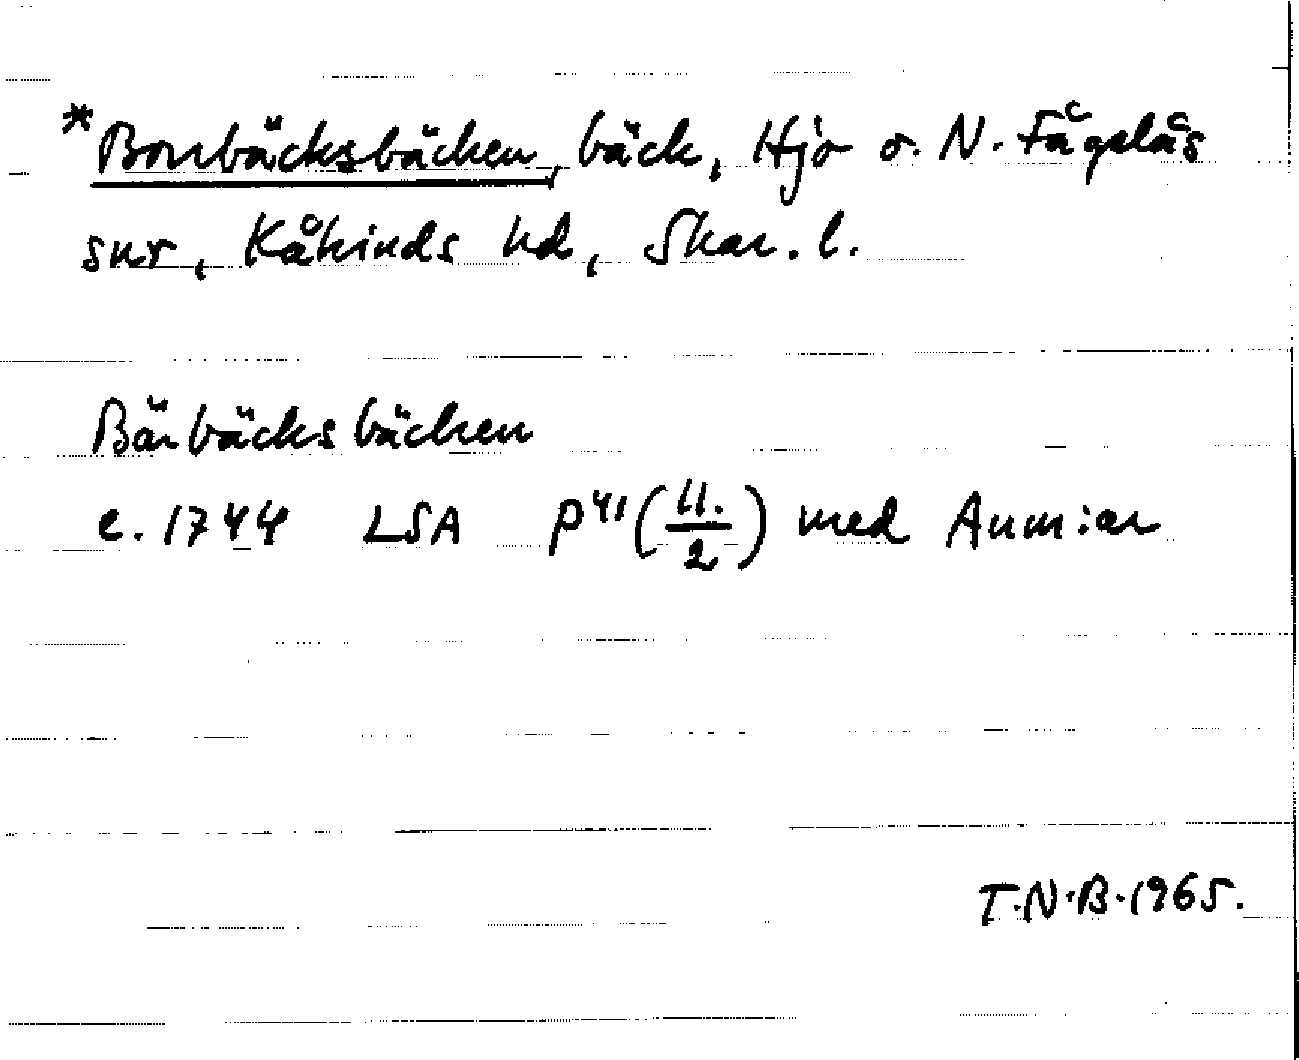 *Bornbäcksbäcken, bäck, Hjo o. N. Fågelås
snr, Kåkinds hd, Skar. l.
Bärbäcksbäcken
c. 1744 LSA P41 (11./2) med Anm:ar
T.N.B. 1965.